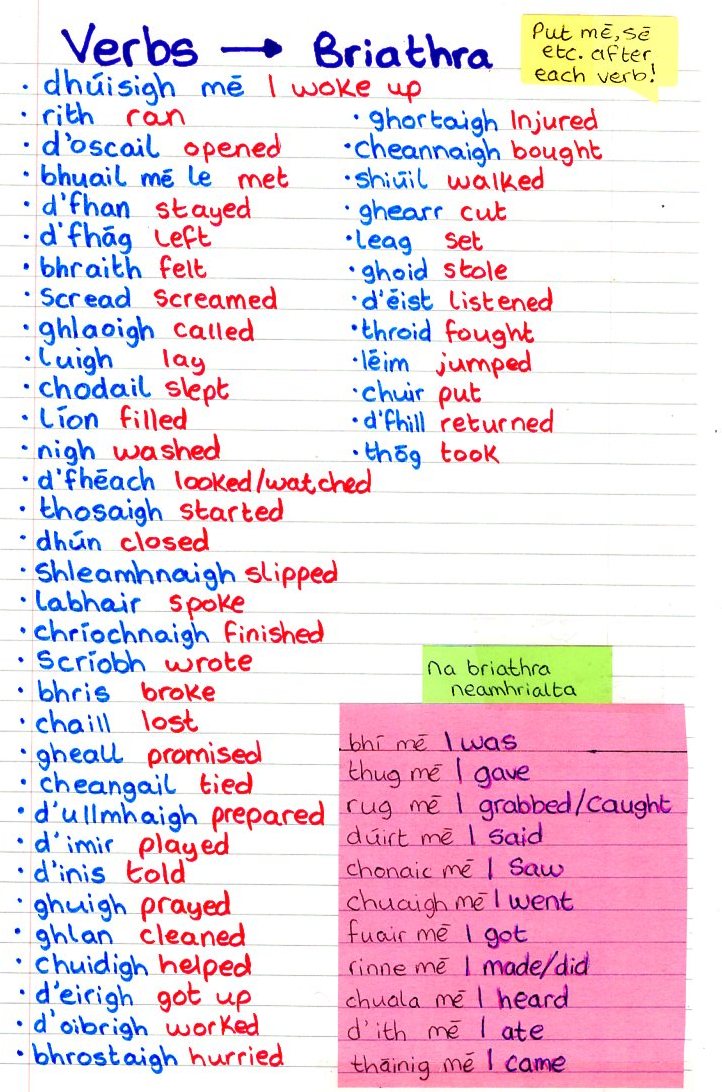 Verbs → Briathra
Put mé, sé
etc. after
each verb!
• dhúisigh mé I woke up
• rith ran
• d'oscail opened
• bhuail mé le met
• d'fhan stayed
• d'fhág left
• bhraith felt
• scread screamed
• ghlaoigh called
• luigh lay
• chodail slept
• líon filled
• nigh washed
• d'fhéach looked/watched
• thosaigh started
• dhún closed
• shleamhnaigh slipped
• labhair spoke
• chríochnaigh finished
• scríobh wrote
• bhris broke
• chaill lost
• gheall promised
• cheangail tied
• d'ullmhaigh prepared
• d'imir played
• d'inis told
• ghuigh prayed
• ghlan cleaned
• chuidigh helped
• d'eirigh got up
• d'oibrigh worked
• bhrostaigh hurried
• ghortaigh Injured
• cheannaigh bought
• shiúil walked
• ghearr cut
• leag set
• ghoid stole
• d'éist listened
• throid fought
• léim jumped
• chuir put
• d'fhill returned
• thóg took
na briathra
neamhrialta
bhí mé I was
thug mé I gave
rug mé I grabbed/caught
dúirt mé I said
chonaic mé I saw
chuaigh mé I went
fuair mé I got
rinne mé I made/did
chuala mé I heard
d'ith mé I ate
tháinig mé I came